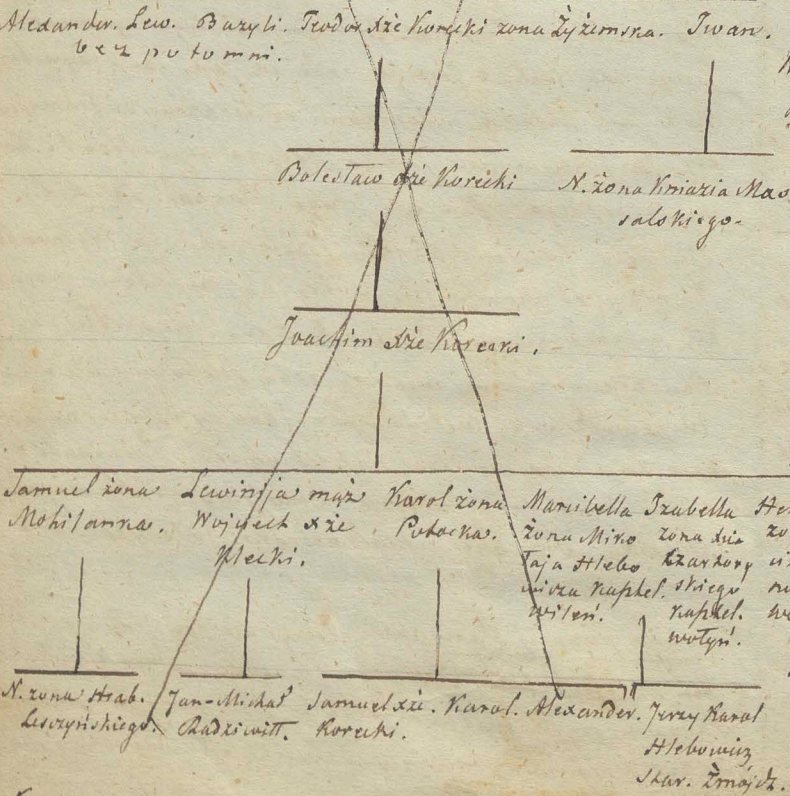 Alexander. Lew. Bazyli. Teodor Xże Korecki żona Żyżemska. Iwan.
bez potomni.
Bolesław Xże Korecki
N. żona Kniazia Mas
salskiego-
Joachim Xże Korecki.
Samuel żona
Mohilanka.
Lewinija mąż
Wojciech Xże
Karol żona
Potocka.
Marcibella
żona Miko
łaja Hlebo
wicza Kasztel.
wileń.
Izabella
żona Xcia
Czartory
skiego
kasztel.
wołyń.
N. żona Hrab.
Leszczyńskiego.
Jan-Michał
Radziwiłł.
Samuel Xże.
Korecki.
Karol.
Alexander.
Jerzy Karol
Hlebowicz
Star. Żmójdz.